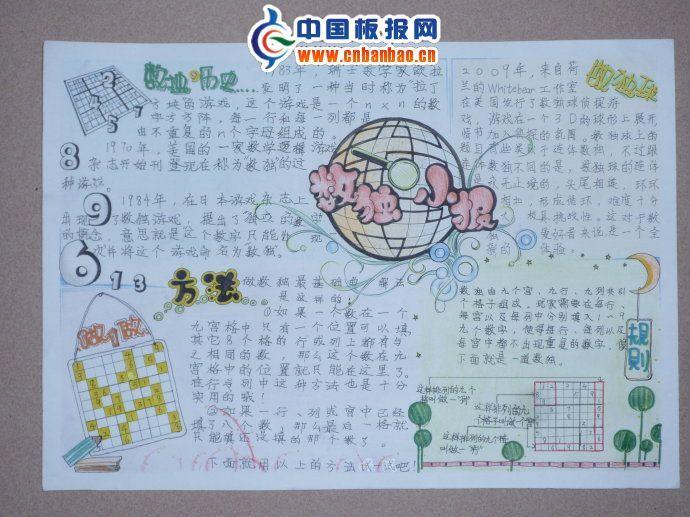 中国板报网
www.cnbanbao.cn
数独の历史……
1783年，瑞士数学家欧拉
发明了一种当时称为"拉丁
方块"的游戏，这个游戏是一个n×n的数
字方阵，每一行和每一列都是
由不重复的n个字母组成的。
1970年，美国的一家数学逻辑游戏
杂志开始刊登现在称为"数独"的这
种游戏。
1984年，在日本游戏杂志上
出现了数独游戏，提出了独立的数字
的概念，意思就是这个数字只能
一次并将这个游戏命名为数独。
8
9
6
7 1 3
数独小报
数独球
2009年，来自荷
兰的Whitebear工作室
在美国发行了数独球侦探游
戏，游戏在一个3D的球形上展开，
情节加入悬探的氛围。数独球上的
题目有些类似于连体数独，不过跟
连体数独不同的是，数独球的连体
首尾相连，环环
相扣，形成循环，难度十分
极具挑战性。这对于数
爱好者来说是一个全
新的体验。
方法
做数独最基础的解法
是这样的：
①如果一个数在一个
九宫格中只有一个位置可以填，
其它8个格的行或列上都有与
之相同的数，那么这个数在九
宫格中的位置就只能在这里了。
在行与列中这种方法也是十分
实用的哦！
②如果一行、列或宫中已经
填了八个数，那么最后一格就
只能填还没填的那个数了。
下面就用以上的方法试一试吧！
做1做
规则
数独由九个宫、九行、九列共81
个格子组成。玩家需要在每行、
每宫以及每列中分别填入1～9
九个数字，使得每行、每列以及
每宫中都不出现重复的数字，像
下面就是一道数独。
这样排列的九个
格叫做一"列"
这样排列的九
个格子叫做个"宫"
这样排列的九个格
叫做一"行"